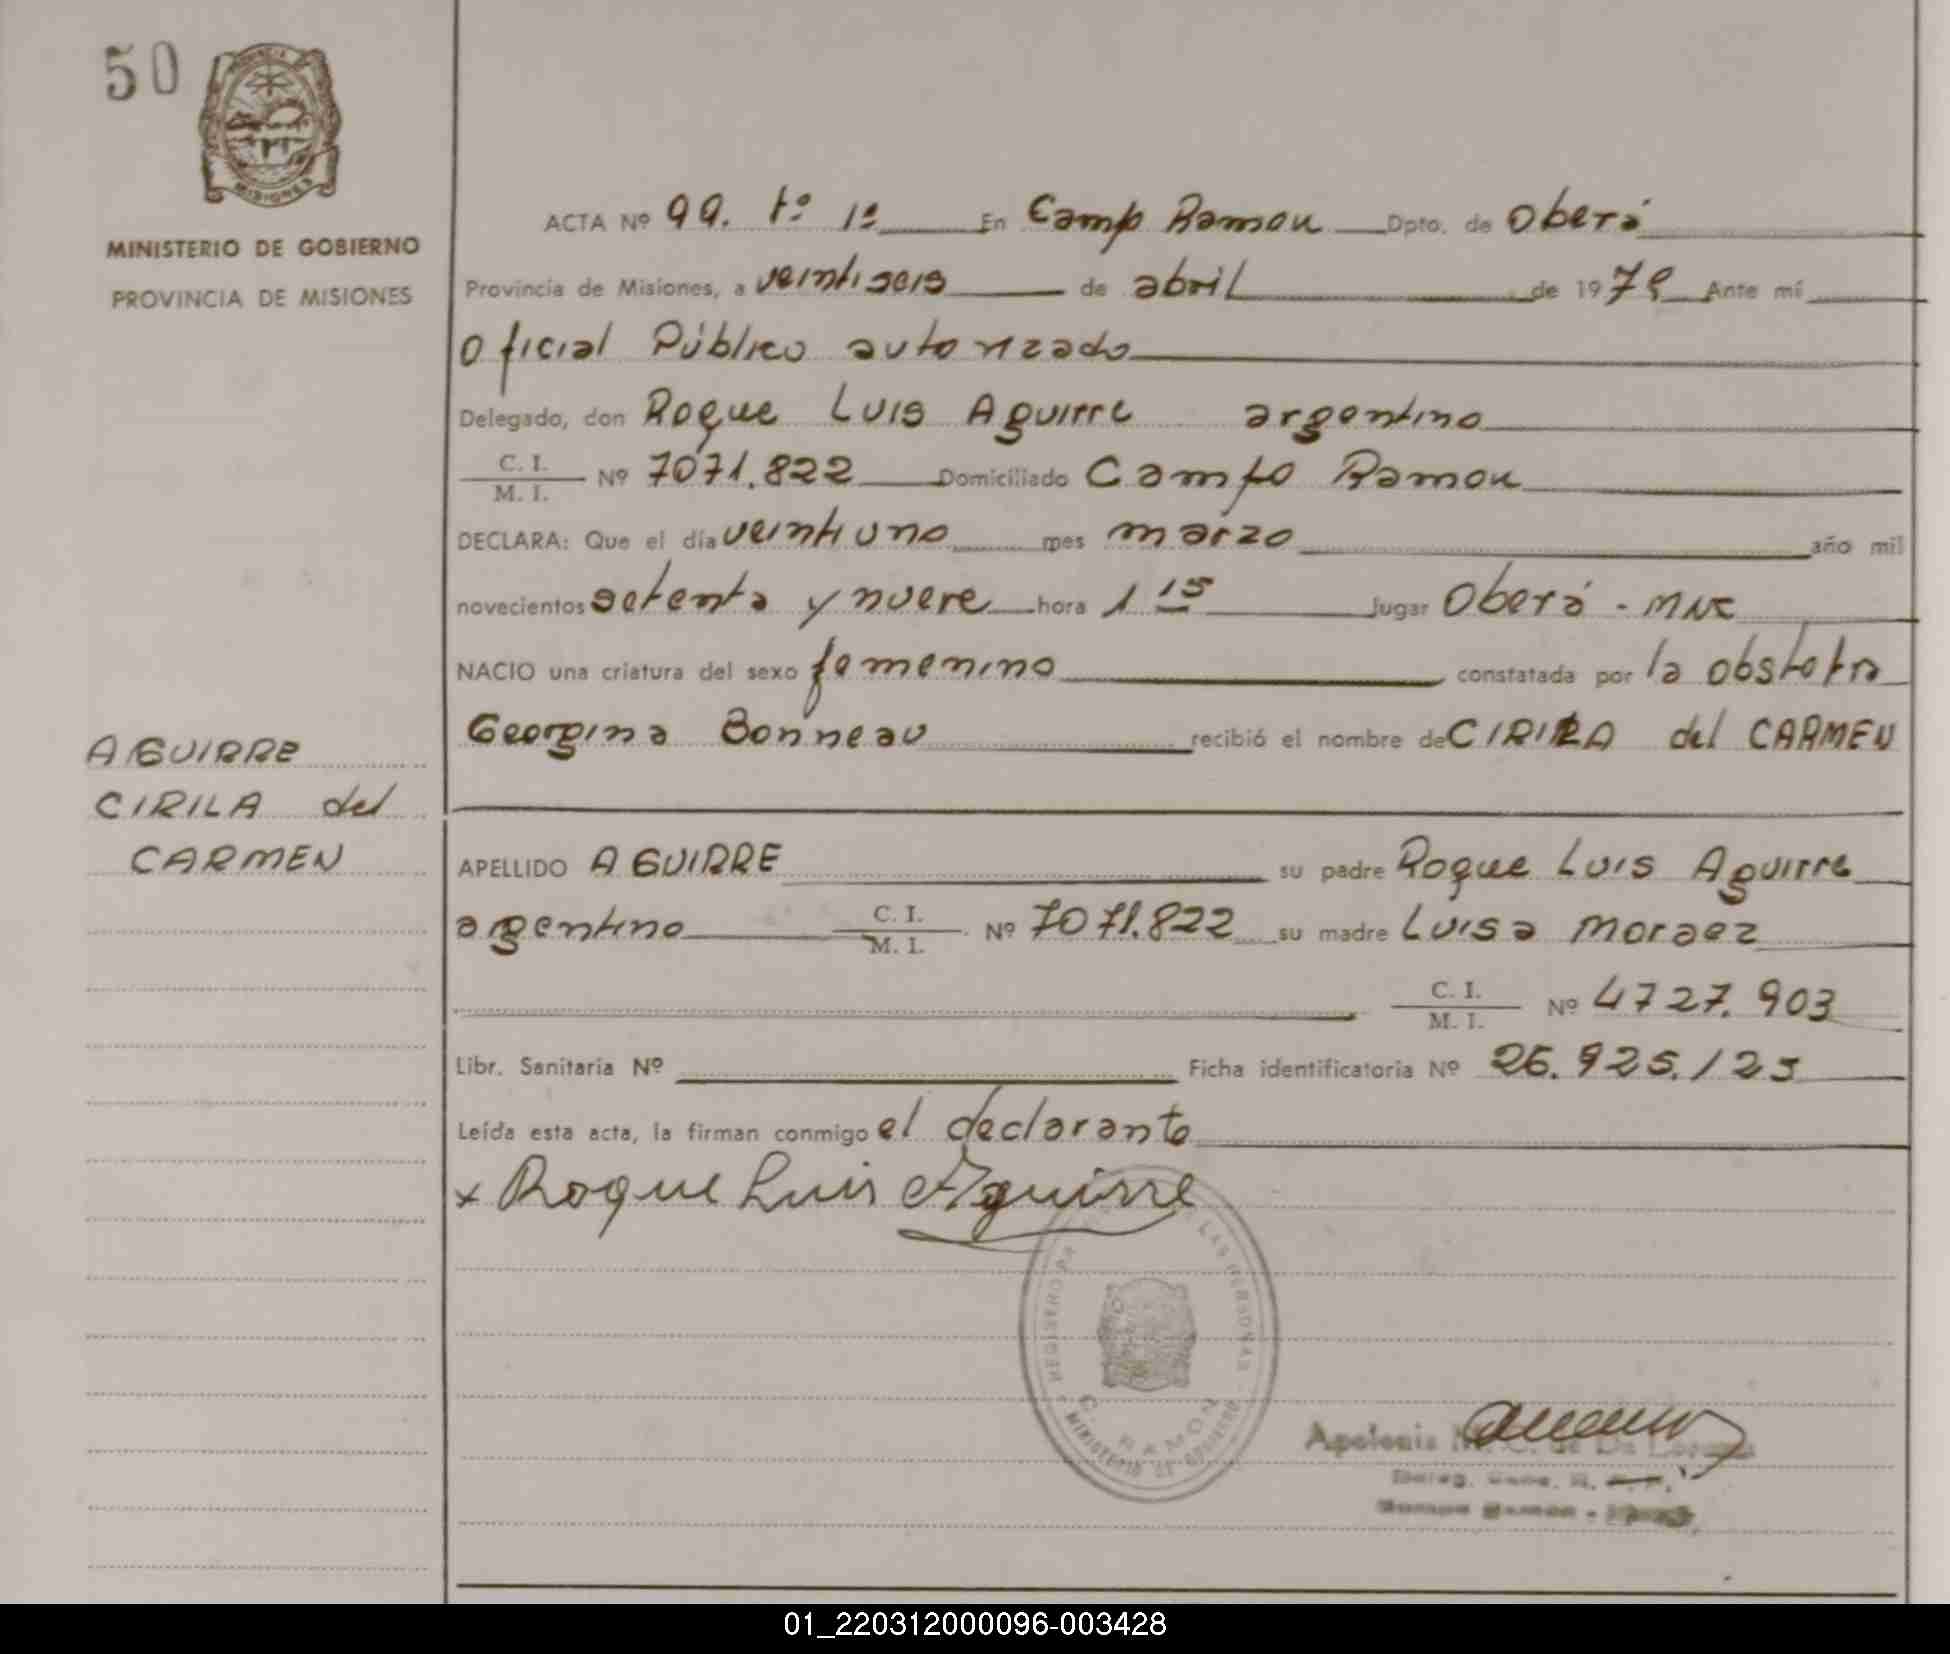 50
MINISTERIO DE GOBIERNO
PROVINCIA DE MISIONES
ACTA Nº 99. tº 1º En Camp Ramon Dpto. de Oberá
Provincia de Misiones, a veintiseis de abril de 1979 Ante mí
Oficial Público autorizado
Delegado, don Roque Luis Aguirre argentino
C. I. / M. I. Nº 7071.822 Domiciliado Campo Ramon
DECLARA: Que el día veintiuno mes marzo año mil
novecientos setenta y nueve hora 1 15 lugar Oberá - Mnes
NACIO una criatura del sexo femenino constatada por la obstetra
Georgina Bonneau recibió el nombre de CIRILA del CARMEN
AGUIRRE
CIRILA del
CARMEN
APELLIDO AGUIRRE su padre Roque Luis Aguirre
argentino C. I. / M. I. Nº 7071.822 su madre Luisa Moraez
C. I. / M. I. Nº 4727.903
Libr. Sanitaria Nº Ficha identificatoria Nº 26.925.125
Leída esta acta, la firman conmigo el declarante
x Roque Luis Aguirre
LAS PERSONAS
C. RAMON
MINISTERIO DE GOBIERNO
Apolonia
01_220312000096-003428